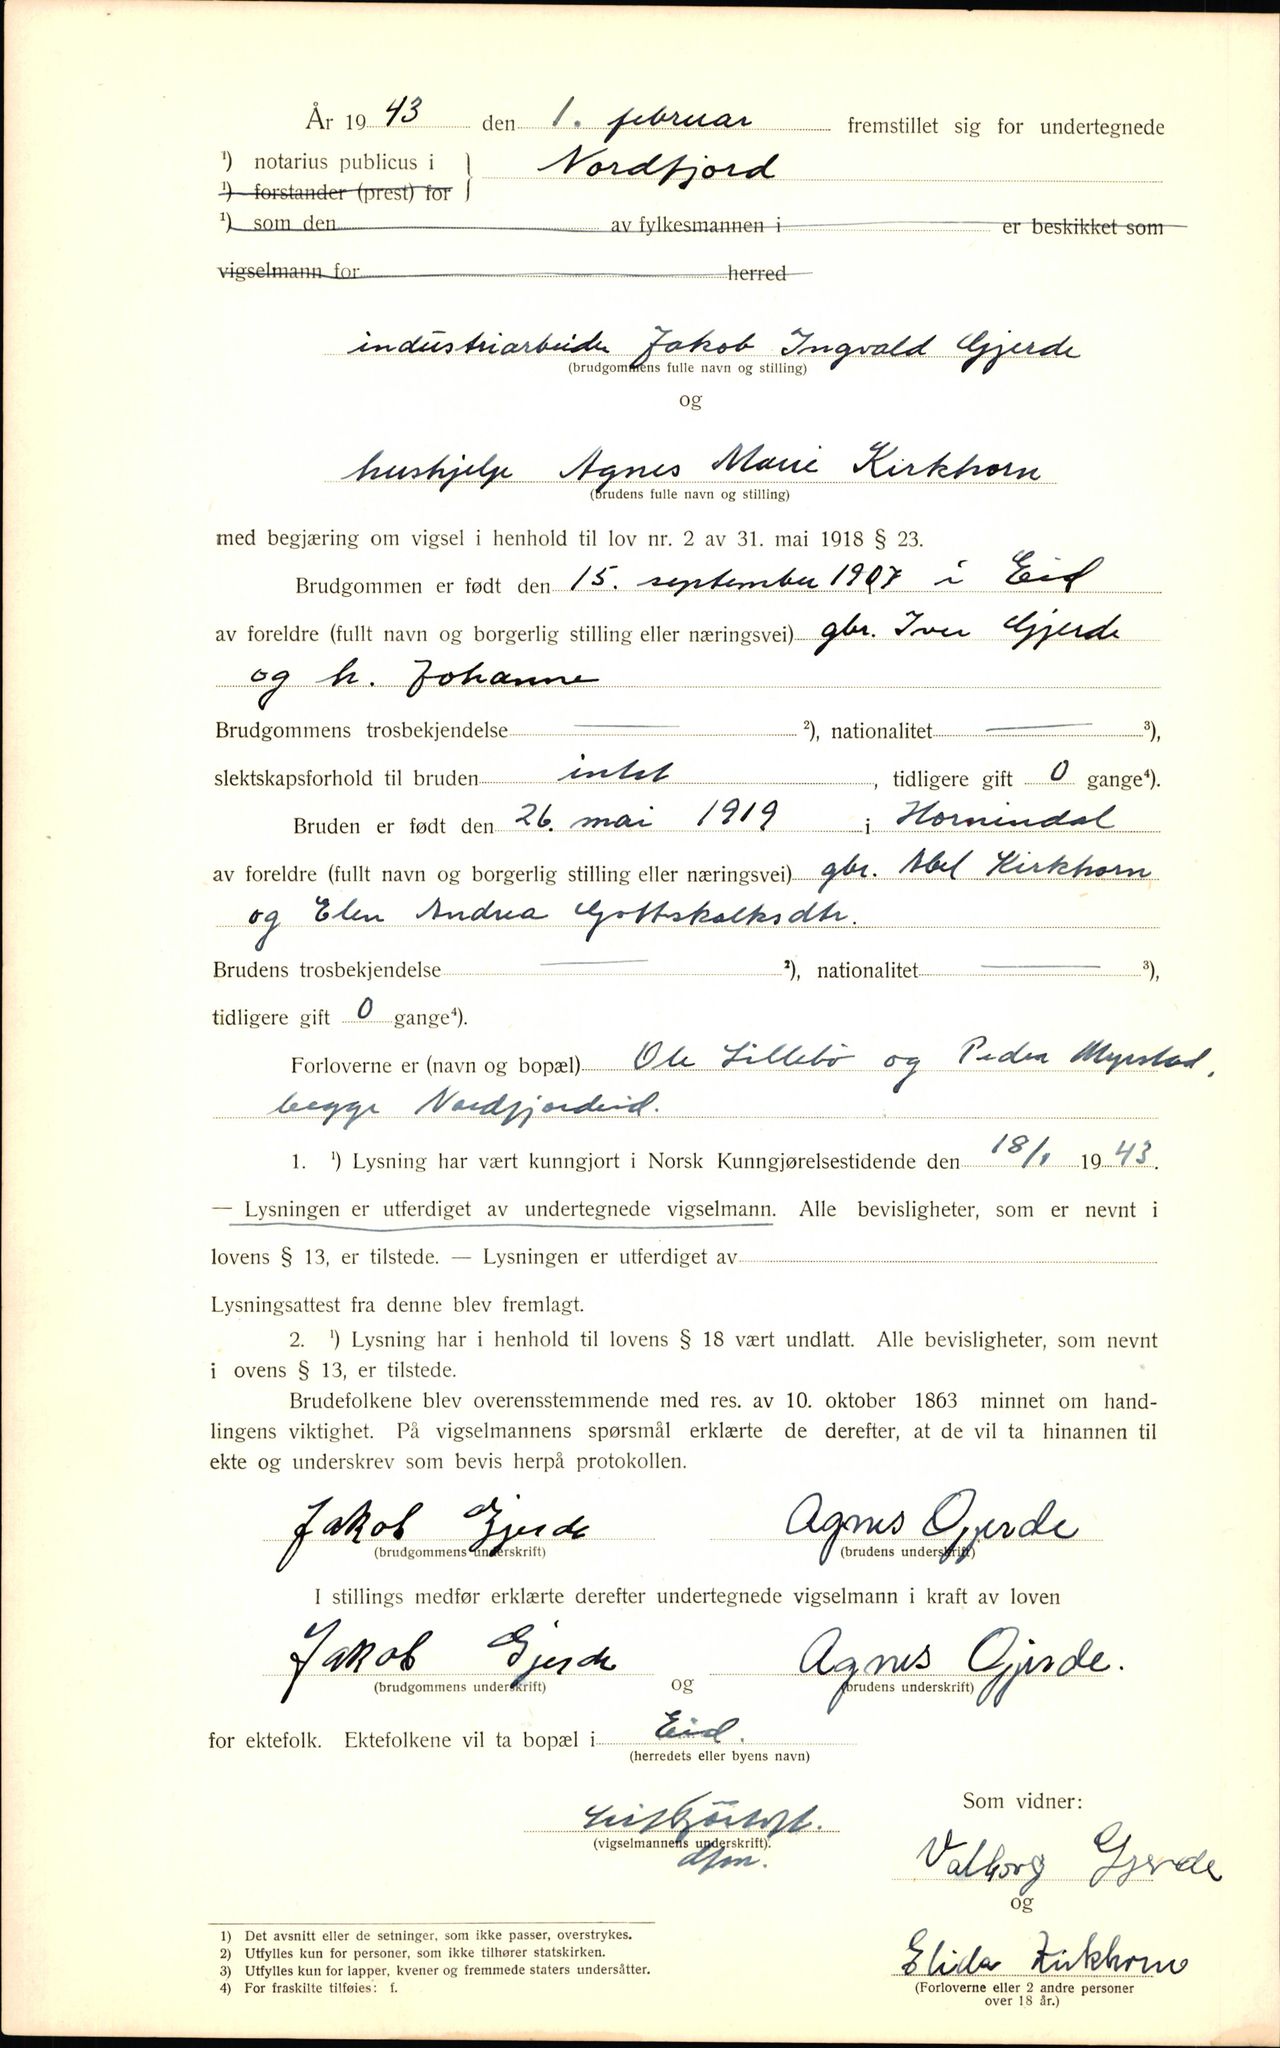 År 1943 den 1. februar fremstillet sig for undertegnede
¹) notarius publicus i } Nordfjord
¹) forstander (prest) for
¹) som den av fylkesmannen i er beskikket som
vigselmann for herred
industriarbeider Jakob Ingvald Gjerde
(brudgommens fulle navn og stilling)
og
hushjelp Agnes Marie Kirkhorn
(brudens fulle navn og stilling)
med begjæring om vigsel i henhold til lov nr. 2 av 31. mai 1918 § 23.
Brudgommen er født den 15. september 1907 i Eid
av foreldre (fullt navn og borgerlig stilling eller næringsvei) gbr. Iver Gjerde
og h. Johanne
Brudgommens trosbekjendelse ²), nationalitet ³),
slektskapsforhold til bruden intet, tidligere gift 0 gange⁴).
Bruden er født den 26. mai 1919 i Hornindal
av foreldre (fullt navn og borgerlig stilling eller næringsvei) gbr. Abel Kirkhorn
og Elen Andrea Gottskalksdtr.
Brudens trosbekjendelse ²), nationalitet ³),
tidligere gift 0 gange⁴).
Forloverne er (navn og bopæl) Ole Lillebö og Peder Myrstad,
begge Nordfjordeid.
1. ¹) Lysning har vært kunngjort i Norsk Kunngjørelsestidende den 18/1 1943.
— Lysningen er utferdiget av undertegnede vigselmann. Alle bevisligheter, som er nevnt i
lovens § 13, er tilstede. — Lysningen er utferdiget av
Lysningsattest fra denne blev fremlagt.
2. ¹) Lysning har i henhold til lovens § 18 vært undlatt. Alle bevisligheter, som nevnt
i ovens § 13, er tilstede.
Brudefolkene blev overensstemmende med res. av 10. oktober 1863 minnet om hand-
lingens viktighet. På vigselmannens spørsmål erklærte de derefter, at de vil ta hinannen til
ekte og underskrev som bevis herpå protokollen.
Jakob Gjerde Agnes Gjerde
(brudgommens underskrift) (brudens underskrift)
I stillings medfør erklærte derefter undertegnede vigselmann i kraft av loven
Jakob Gjerde og Agnes Gjerde.
(brudgommens underskrift) (brudens underskrift)
for ektefolk. Ektefolkene vil ta bopæl i Eid.
(herredets eller byens navn)
Som vidner:
(vigselmannens underskrift).
Valborg Gjerde
og
Elida Kirkhorn
(Forloverne eller 2 andre personer
over 18 år.)
1) Det avsnitt eller de setninger, som ikke passer, overstrykes.
2) Utfylles kun for personer, som ikke tilhører statskirken.
3) Utfylles kun for lapper, kvener og fremmede staters undersåtter.
4) For fraskilte tilføies: f.